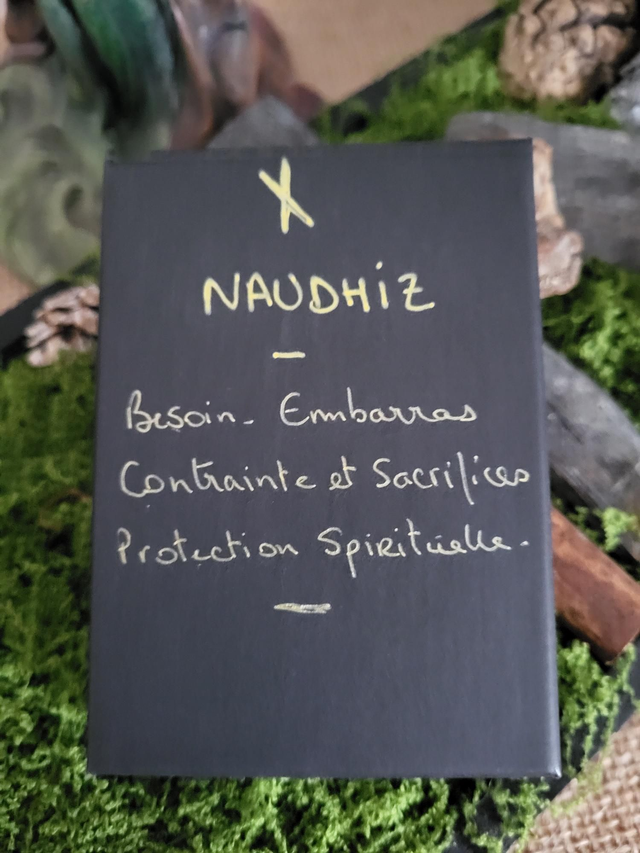 ᚾ
NAUDHiZ
—
Besoin - Embarras
Contrainte et Sacrifices
Protection Spirituelle.
—